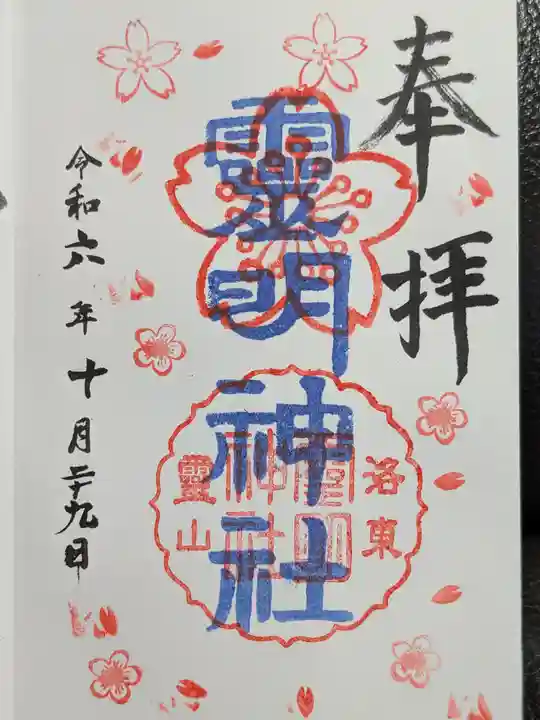 奉拝
靈明神社
洛東
靈明神社
靈山
令和六年十月二十九日